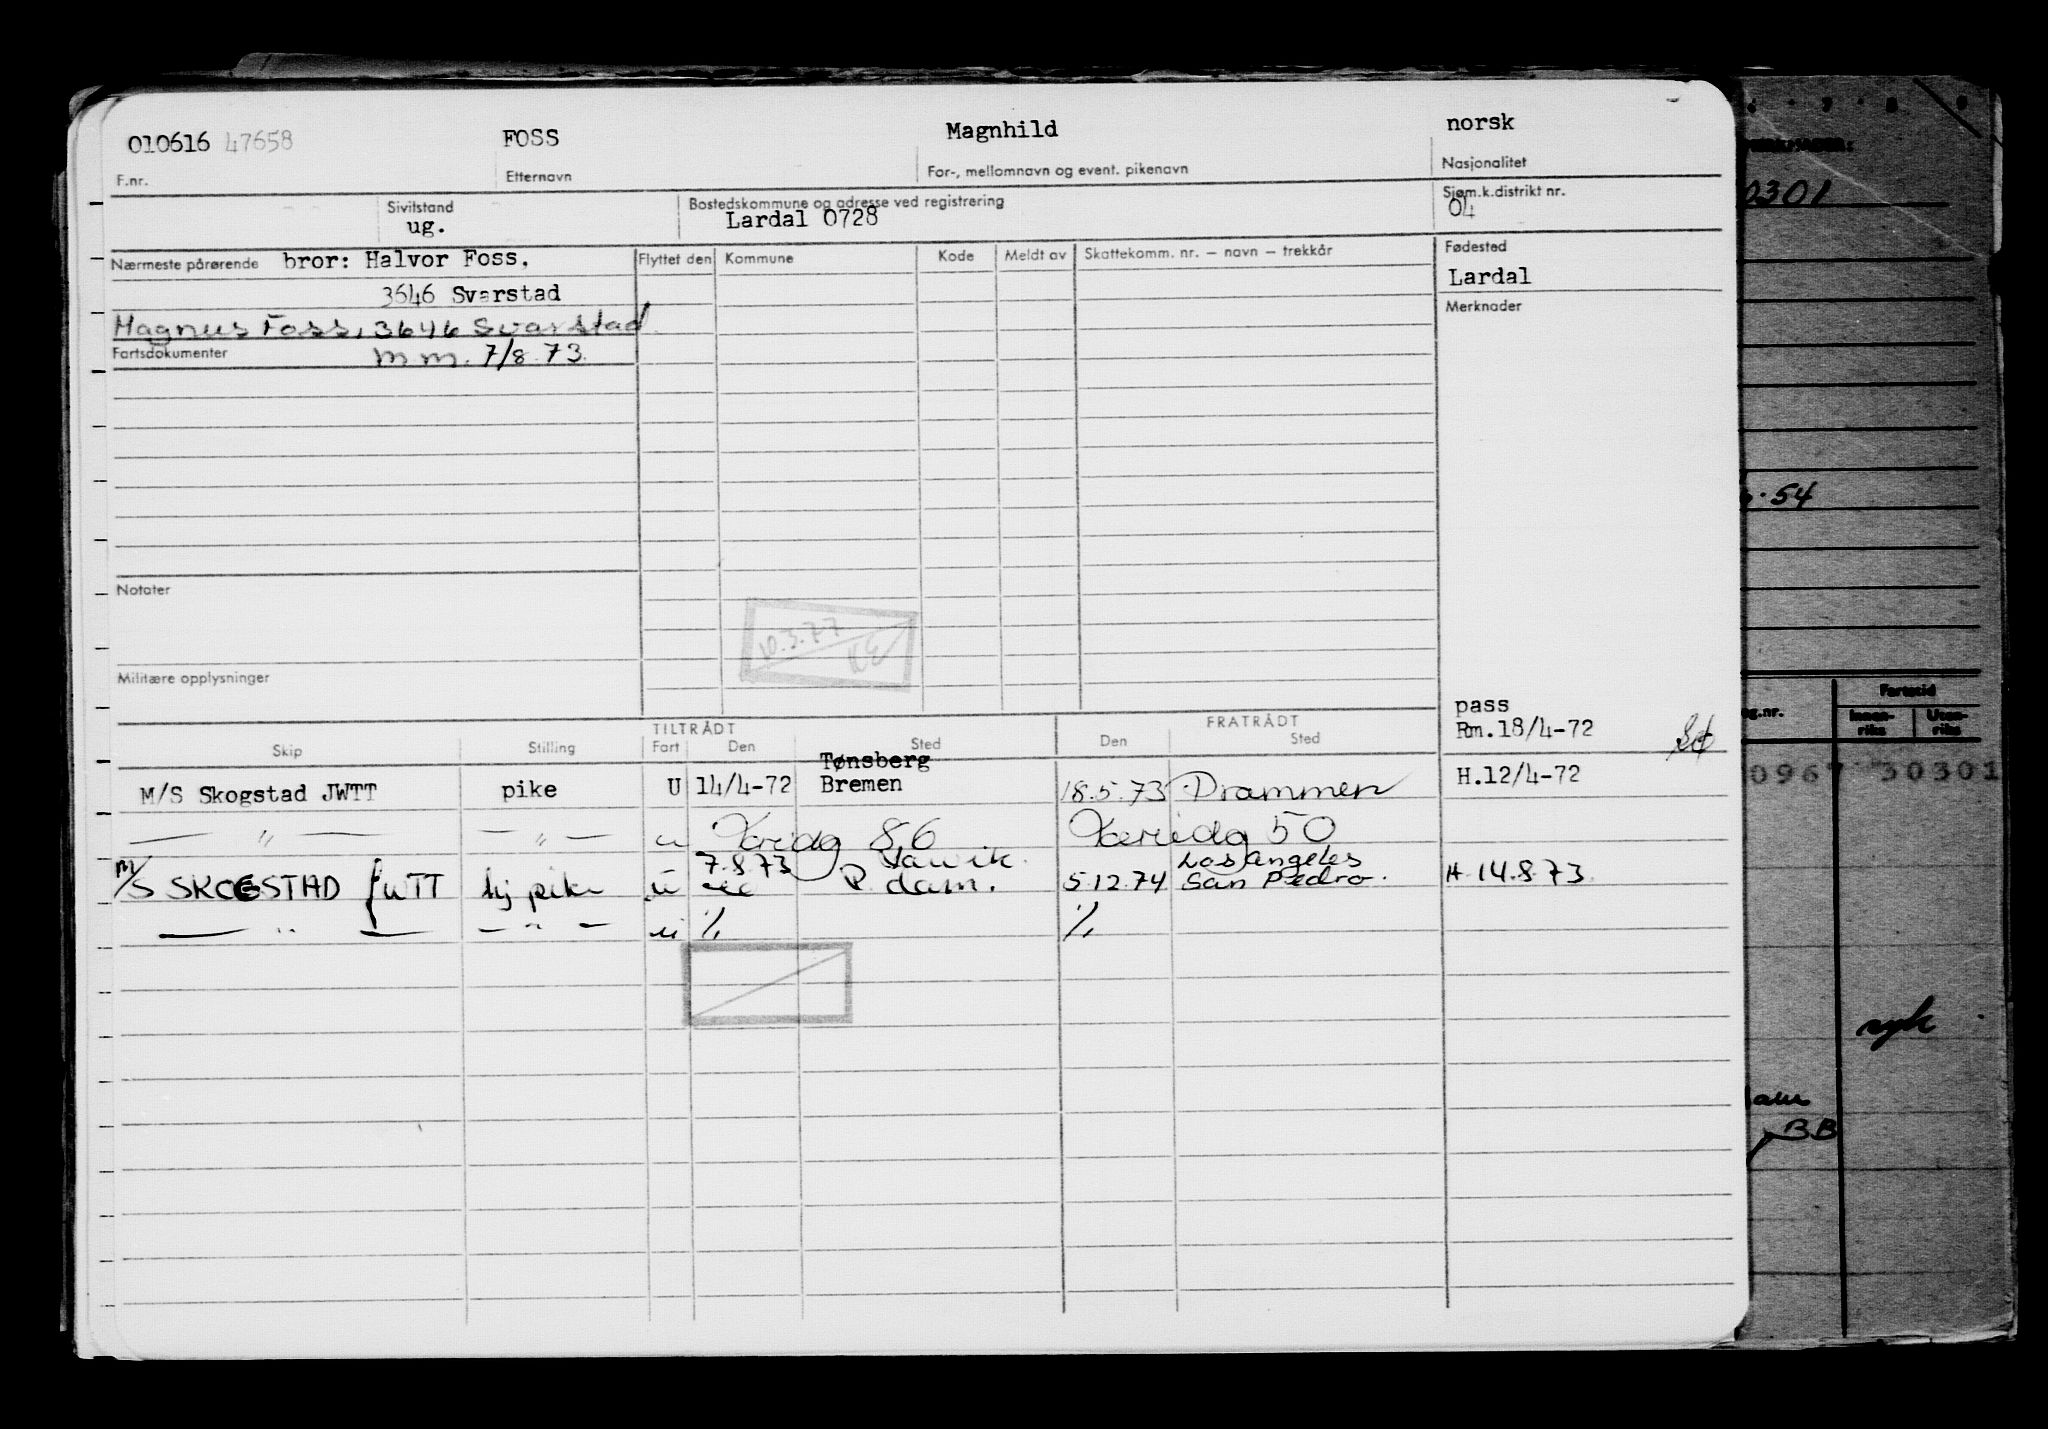 010616 47658 FOSS Magnhild norsk
F.nr. Etternavn For-, mellomnavn og event. pikenavn Nasjonalitet
Sivilstand Bostedskommune og adresse ved registrering Sjøm.k.distrikt nr.
ug. Lardal 0728 04
Nærmeste pårørende bror: Halvor Foss, Flyttet den Kommune Kode Meldt av Skattekomm. nr. – navn – trekkår Fødested
3646 Svarstad Lardal
Magnus Foss, 3646 Svarstad Merknader
Fartsdokumenter m m. 7/8 73.
Notater
10.3.77
KE
Militære opplysninger
pass
TILTRÅDT FRATRÅDT Rm.18/4-72
Skip Stilling Fart Den Sted Den Sted
Tønsberg
M/S Skogstad JWTT pike U 14/4-72 Bremen 18.5.73 Drammen H.12/4-72
— " — — " — u 86 50
7.8.73 Los Angeles
M/S SKOGSTAD JWTT pike u dam. 5.12.74 San Pedro. H. 14.8.73.
— " — — " — u % %
0301
54
Fartstid
Innen-riks Uten-riks
0967 30301
syk
BB